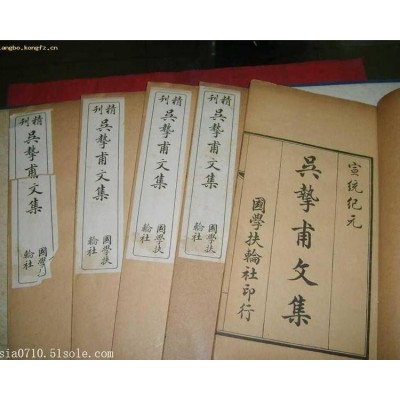 angbo.kongfz.cn
精刊
吳摯甫文集
國學
輪社
精刊
吳摯甫文集
國學扶
輪社
精刊
吳摯甫文集
國學扶
輪社
精刊
吳摯甫文集
國學扶
輪社
宣統紀元
吳摯甫文集
國學扶輪社印行
sia0710.51sole.com